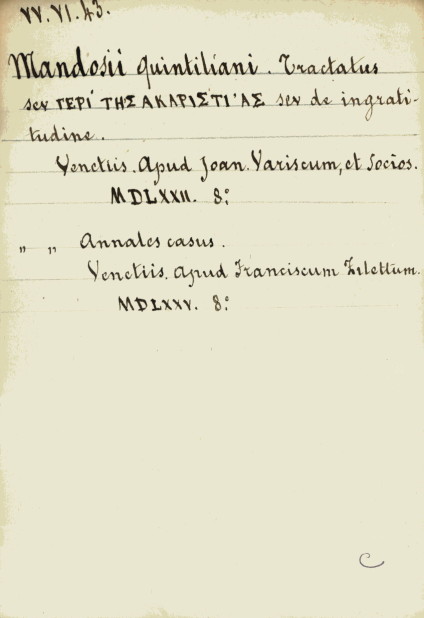 VV.VI.43.
Mandosii Quintiliani. Tractatus
seu ΓΕΡΊ ΤΗΣ ΑΚΑΡΙΣΤΊΑΣ seu de ingrati-
tudine.
Venetiis. Apud Joan. Variscum, et Socios.
MDLXXII. 8:°
" " Annales casus.
Venetiis. Apud Franciscum Zilettum.
MDLXXV. 8:°
C